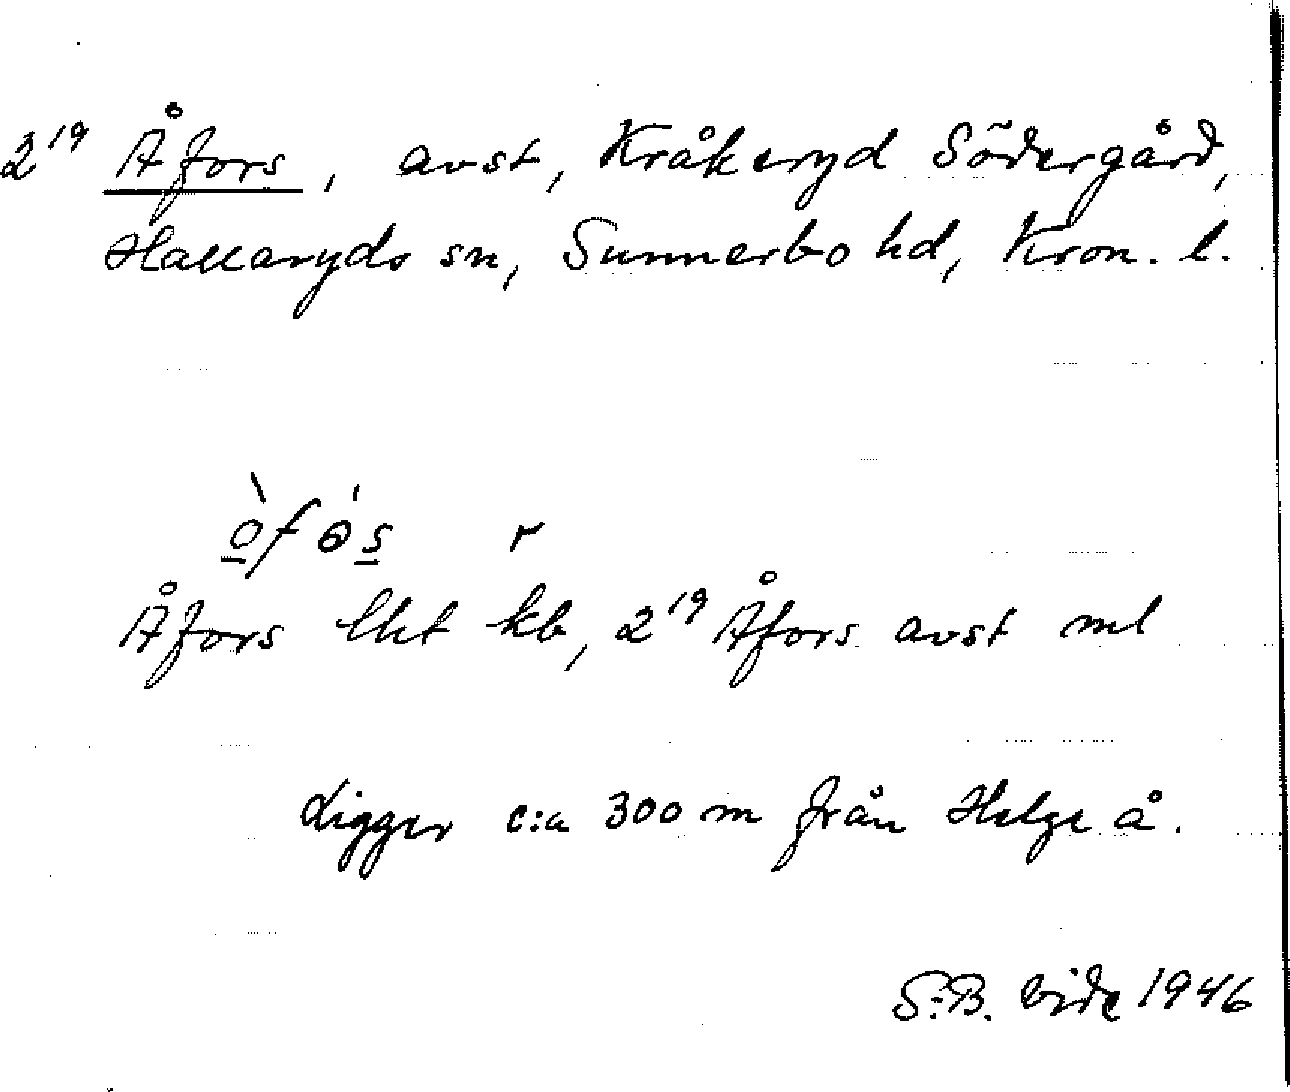 2¹⁹ Åfors, avst, Kråkeryd Södergård,
Hallaryds sn, Sunnerbo hd, Kron. l.
r
Åfors lht kb, 2¹⁹ Åfors avst ml
Ligger c:a 300 m från Helge å.
S.B. Vide 1946